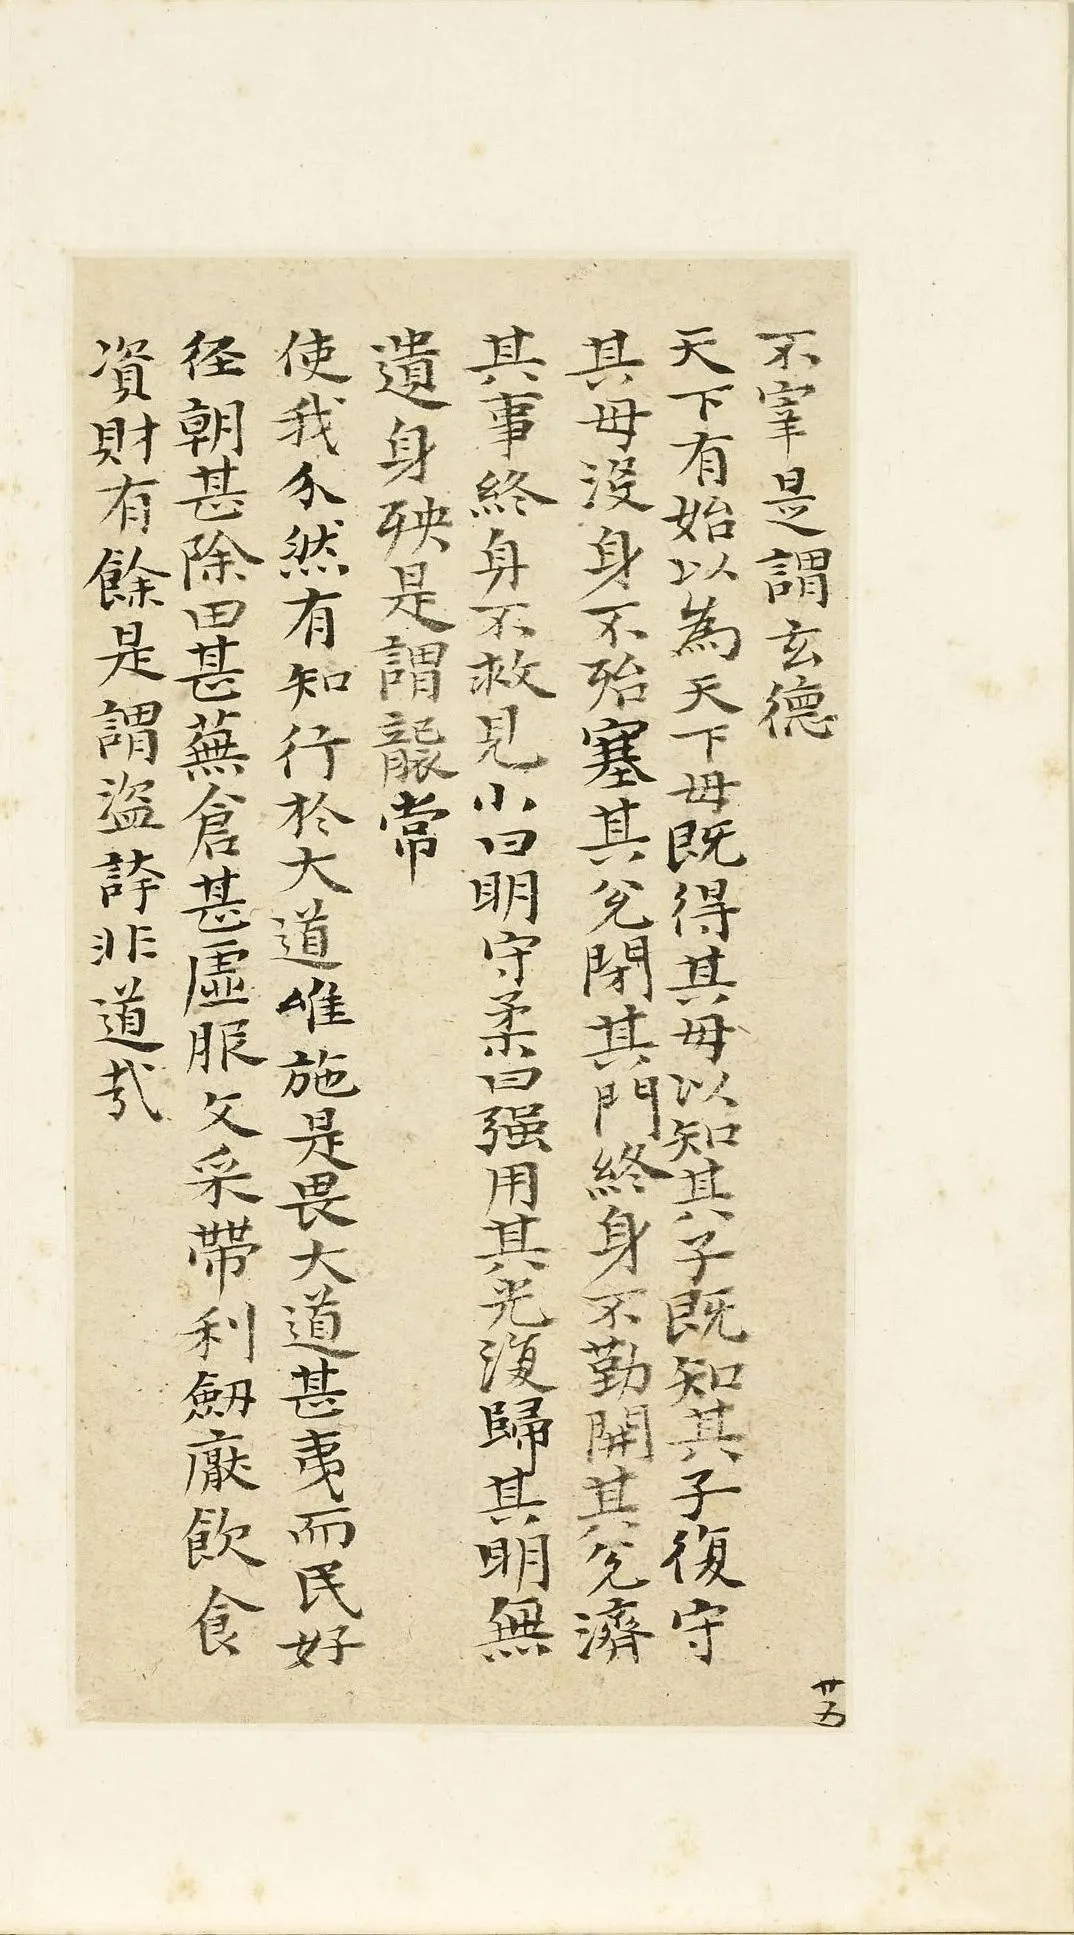 不宰是謂玄德
天下有始以為天下母既得其母以知其子既知其子復守
其母沒身不殆塞其兌閉其門終身不勤開其兌濟
其事終身不救見小曰明守柔曰强用其光復歸其明無
遺身殃是謂襲常
使我介然有知行於大道唯施是畏大道甚夷而民好
径朝甚除田甚蕪倉甚虛服文采帶利劒厭飲食
資財有餘是謂盜誇非道㢤
廿五